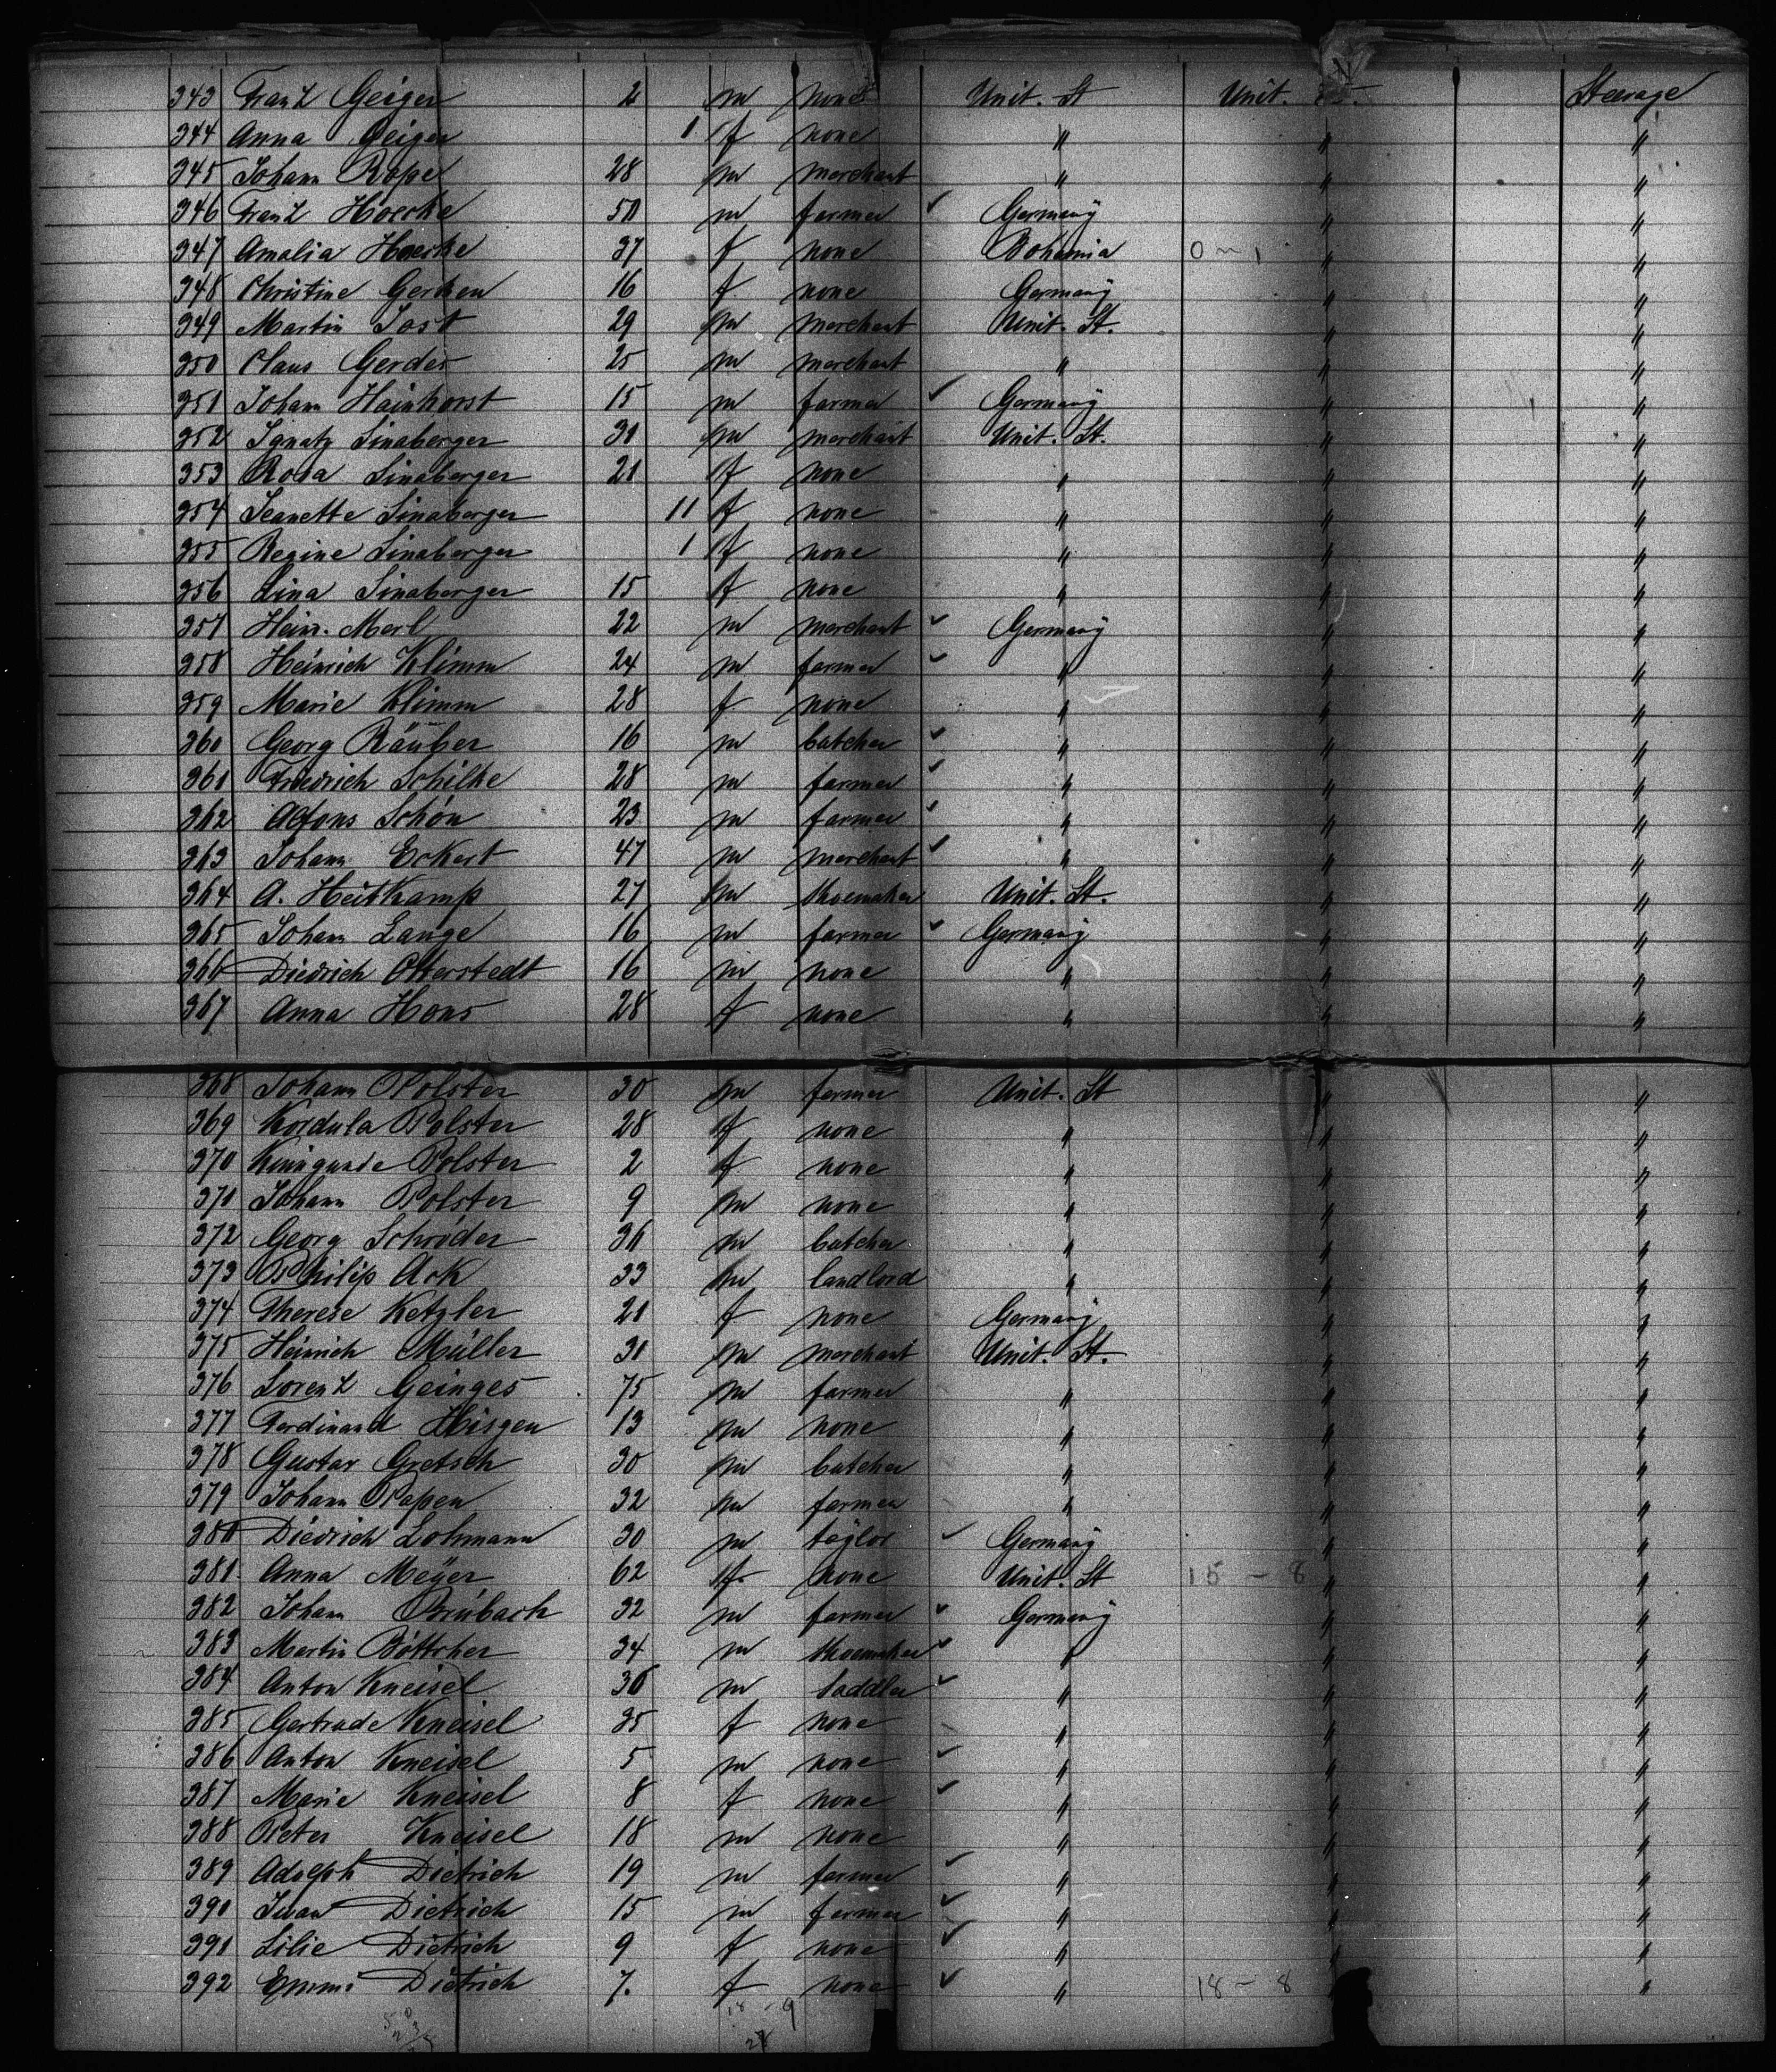 343 Franz Geiger 2 m none Unit. St Unit. St. Steerage
344 Anna Geiger 1 f none " " "
345 Johann Rope 28 m merchant " " "
346 Franz Hoerke 50 m farmer ✓ Germany " "
347 Amalia Hoerke 37 f none Bohemia 0 ~ 1 " "
348 Christine Gerken 16 f. none Germany " "
349 Martin Jost 29 m merchant Unit. St. " "
350 Claus Gerdes 25 m merchant " " "
351 Johann Hainhorst 15 m farmer ✓ Germany " "
352 Ignatz Sinaberger 31 m merchant Unit. St. " "
353 Rosa Sinaberger 21 f none " " "
354 Jeanette Sinaberger 11 f none " " "
355 Regine Sinaberger 1 f none " " "
356 Lina Sinaberger 15 f none " " "
357 Heinr. Merl 22 m merchant ✓ Germany " "
358 Heinrich Klimm 24 m farmer ✓ " " "
359 Marie Klimm 28 f. none " " "
360 Georg Räuber 16 m butcher ✓ " " "
361 Friedrich Schilke 28 m farmer ✓ " " "
362 Alfons Schön 23 m farmer ✓ " " "
363 Johann Eckert 47 m merchant ✓ " " "
364 A. Heitkamp 27 m shoemaker Unit. St. " "
365 Johann Lange 16 m farmer ✓ Germany " "
366 Diedrich Otterstedt 16 m none " " "
367 Anna Hons 28 f none " " "
368 Johann Polster 30 m farmer Unit. St " "
369 Kordula Polster 28 f none " " "
370 Kunigunde Polster 2 f none " " "
371 Johann Polster 9 m none " " "
372 Georg Schröder 36 m butcher " " "
373 Philip Ack 33 m landlord " " "
374 Therese Ketzler 21 f none Germany " "
375 Heinrich Müller 31 m merchant Unit. St. " "
376 Lorenz Geinges 75 m farmer " " "
377 Ferdinand Hisgen 13 m none " " "
378 Gustav Gretsch 30 m butcher " " "
379 Johann Papen 32 m farmer " " "
380 Diedrich Lohmann 30 m taylor ✓ Germany " "
381. Anna Meÿer 62 f. none Unit. St 15 - 8 " "
382 Johann Brübach 32 m farmer ✓ Germany " "
383 Martin Böttcher 34 m shoemaker ✓ " " "
384 Anton Kneisel 36 m saddler ✓ " " "
385 Gertrude Kneisel 35 f none " " "
386 Anton Kneisel 5 m none ✓ " " "
387 Marie Kneisel 8 f none ✓ " " "
388 Peter Kneisel 18 m none " " "
389 Adolph Dietrich 19 m farmer ✓ " " "
390 Iwan Dietrich 15 m farmer ✓ " " "
391 Lilie Dietrich 9 f none ✓ " " "
392 Emmi Dietrich 7. f none ✓ " 18 - 8 " "
18 - 9